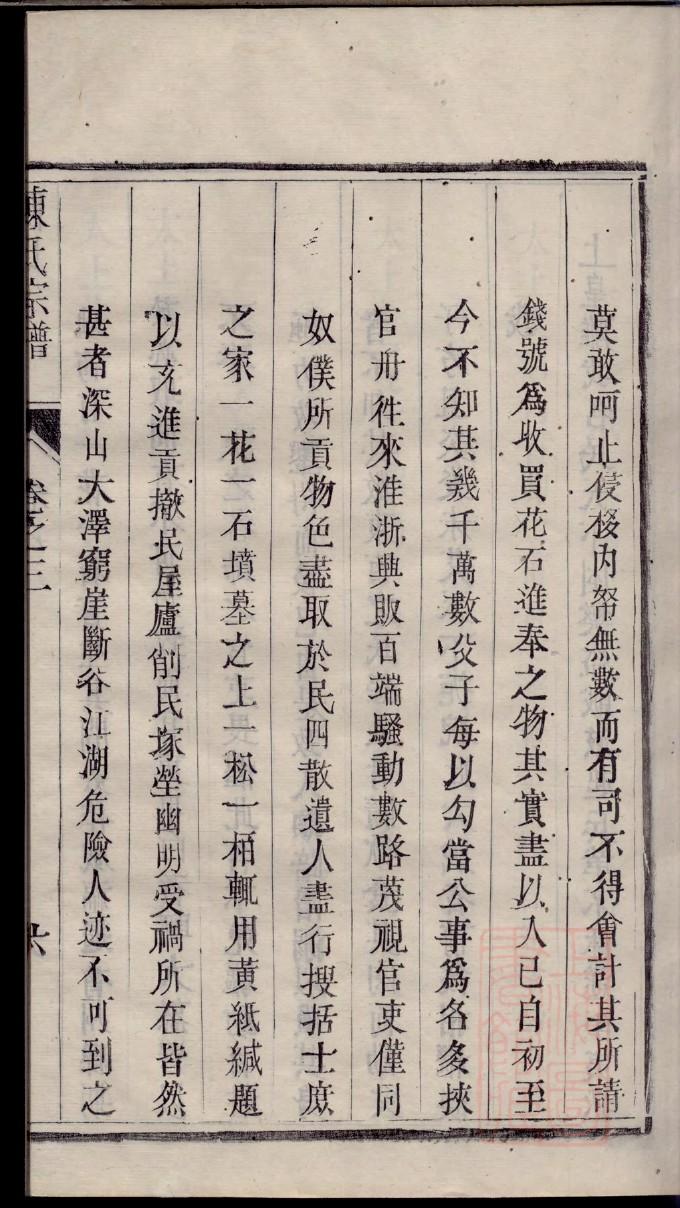 莫敢呵止侵椶内帑無數而有司不得會計其所請
錢號爲收買花石進奉之物其實盡以入已自初至
今不知其幾千萬數父子每以勾當公事爲名多挾
官舟徃來淮浙典販百端騷動數路茂視官吏僅同
奴僕所貢物色盡取於民四散遺人盡行搜括士庶
之家一花一石墳墓之上一松一栢輒用黄紙緘題
以充進貢撤民屋廬削民塚塋幽明受禍所在皆然
甚者深山大澤窮崖斷谷江湖危險人迹不可到之
陳氏宗譜
卷之三
六